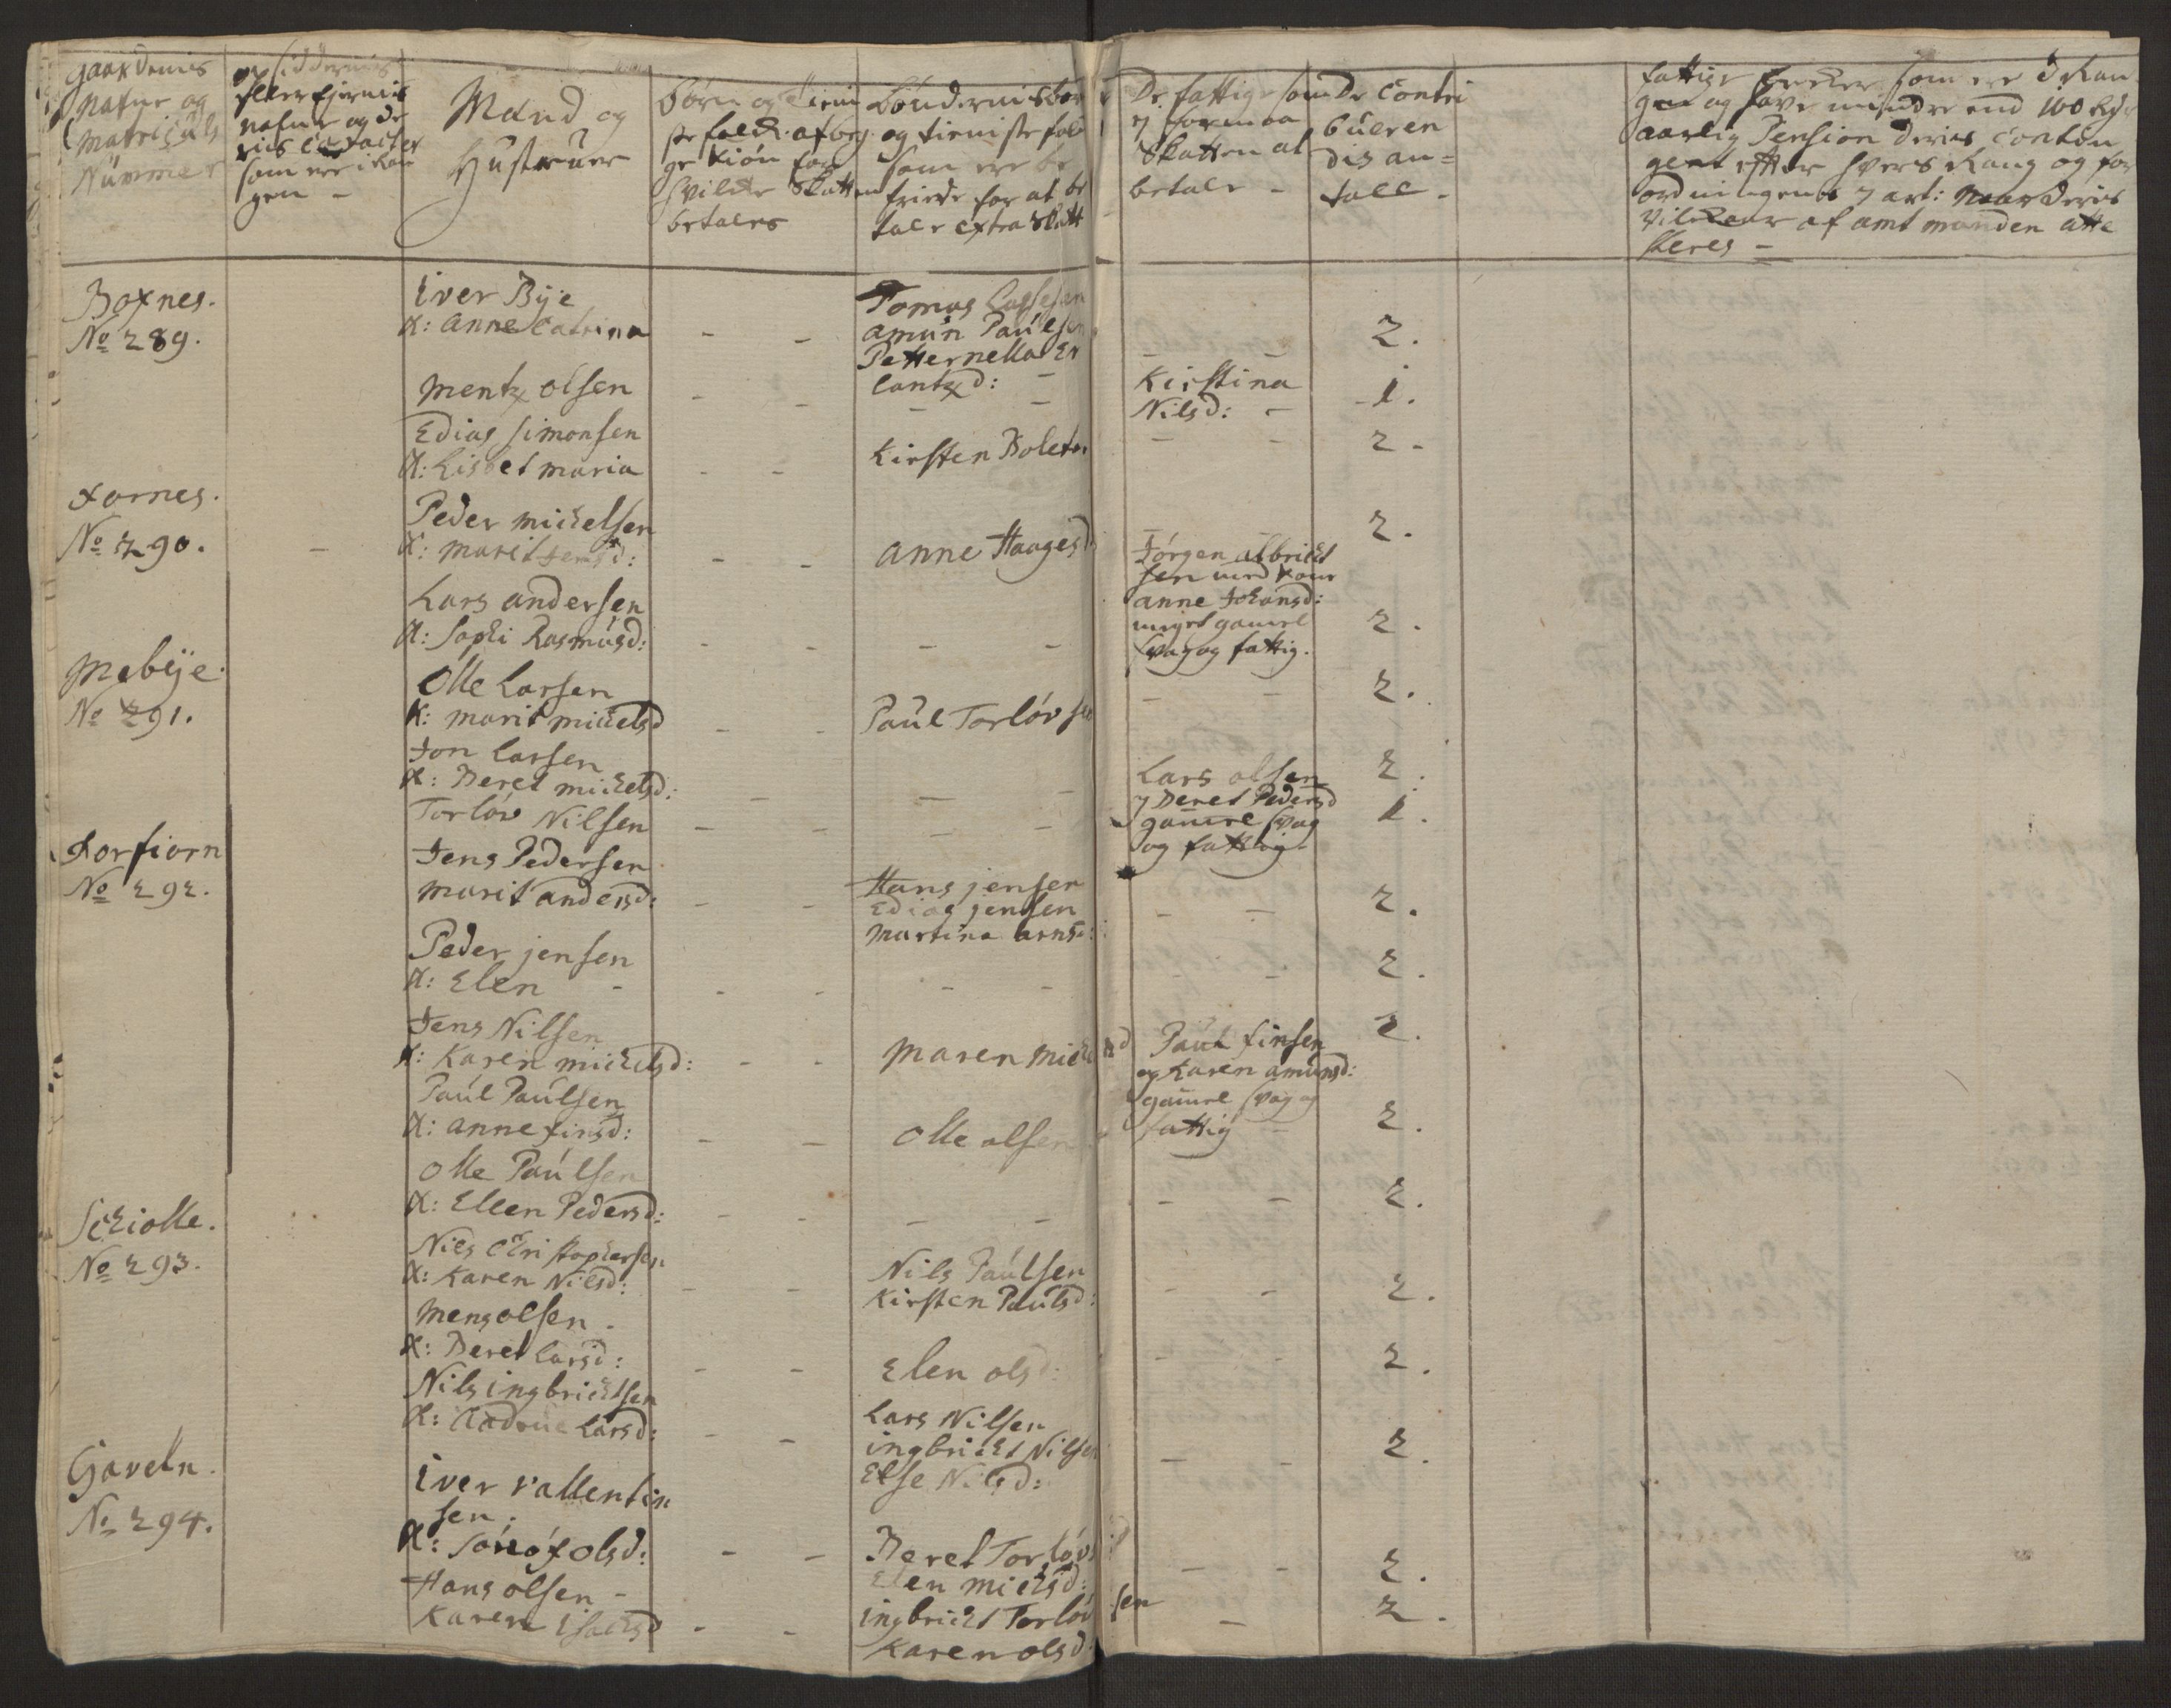 Gaardernis
Nafne og
Matrijculs
Nummer
opsiddernis
eller Ejernis
nafne og de
ris Caracter
som ere i Ran
gen -
Mænd og
Hustruer
Børn og tieni
ste folck af bej
ge kiøn for
hvilcke Skatten
betales
Bøndernis bør
og tieniste folck
som ere be
friede for at be
tale Extra Skatt
De fattige som
ej formaa
Skatten at
betale -
De Contri
bueren
dis an=
tall -
fattige Encker som ere i Ran
gen og have mindre end 100 Rdr
aarlig Pension deris Contin
gent efter hvers Rang og for
ordningens 7 art: naar deris
Vilckaar af amtmanden atte
steres =
Boxnes.
No 289.
Iver Bye
K: Anne Catrina - -
Tomas Lassesen
Amun Paulsen
Petternella Er
lantzd: -
- - 2.
Mentz olsen - - - -
Kirstina
Nilsd: - 1.
Edias Simonsen
K: Lisbet maria - -
Kirsten Boleta
- - 2 -
Fornes.
No 290. -
Peder michelsen
K: marit Jensd: - -
Anne Haagesd
- - 2.
Lars andersen
K: Sophi Rasmusd: - - - -
Jørgen albricht
sen med Kone
anne Johansd:
meget gamel
svag og fattig.
2.
Mebye.
No 291.
Olle Larsen
K: marit michelsd - -
Paul Torløvsen
- - 2.
Jon Larsen
K: Beret michelsd: - - -
2.
Torløv Nilsen - - - -
Lars olsen
og Beret Pedersd
gamel svag
og fattig
1.
Forfiorn
No 292.
Jens Pedersen
marit andersd: - -
Hans jensen
Edias jensen
Martina arnsd:
- - 2.
Peder jensen
K: Elen - - - - -
- - 2.
Jens Nilsen
K: Karen michelsd: - -
maren michelsd
2.
Paul Paulsen
K: anne finsd: - -
Olle olsen
Paul finsen
og Karen amunsd:
gamel svag og
fattig -
2.
Olle Paulsen
K: Ellen Pedersd: - - - -
- - 2.
Schiolle.
No 293.
Nils Christophersen
K: Karen Nilsd: - -
Nils Paulsen
Kirsten Paulsd:
- - 2.
Mens olsen -
K: Beret Larsd: - -
Elen olsd:
- - 2.
Nils ingbrichtsen
K: Larsd: - -
Lars Nilsen
ingbricht Nilsen
Else Nilsd:
- - 2.
Gaveln.
No 294.
Iver Vallentin
sen.
K: Olsd: - -
Beret Torløvsd
Elen michsd:
- - 2.
Hans olsen -
Karen Isachsd - -
ingbricht Torløv sen
Karen olsd
- 2.